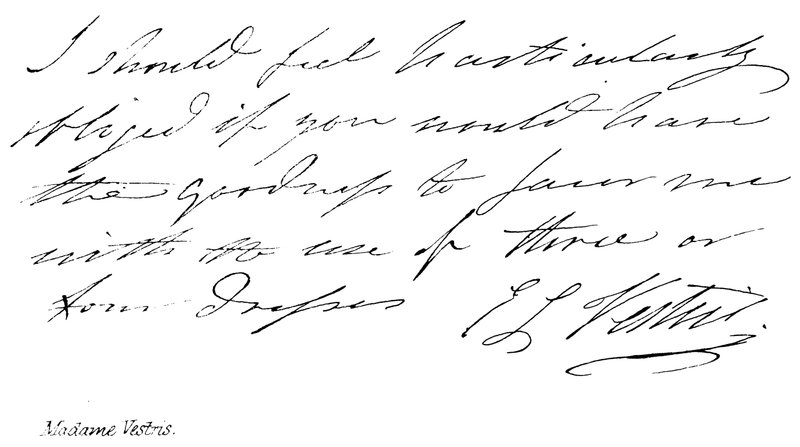 I should feel particularly
obliged if you would have
the goodness to favor me
with the use of three or
four dresses E L Vestris
Madame Vestris.